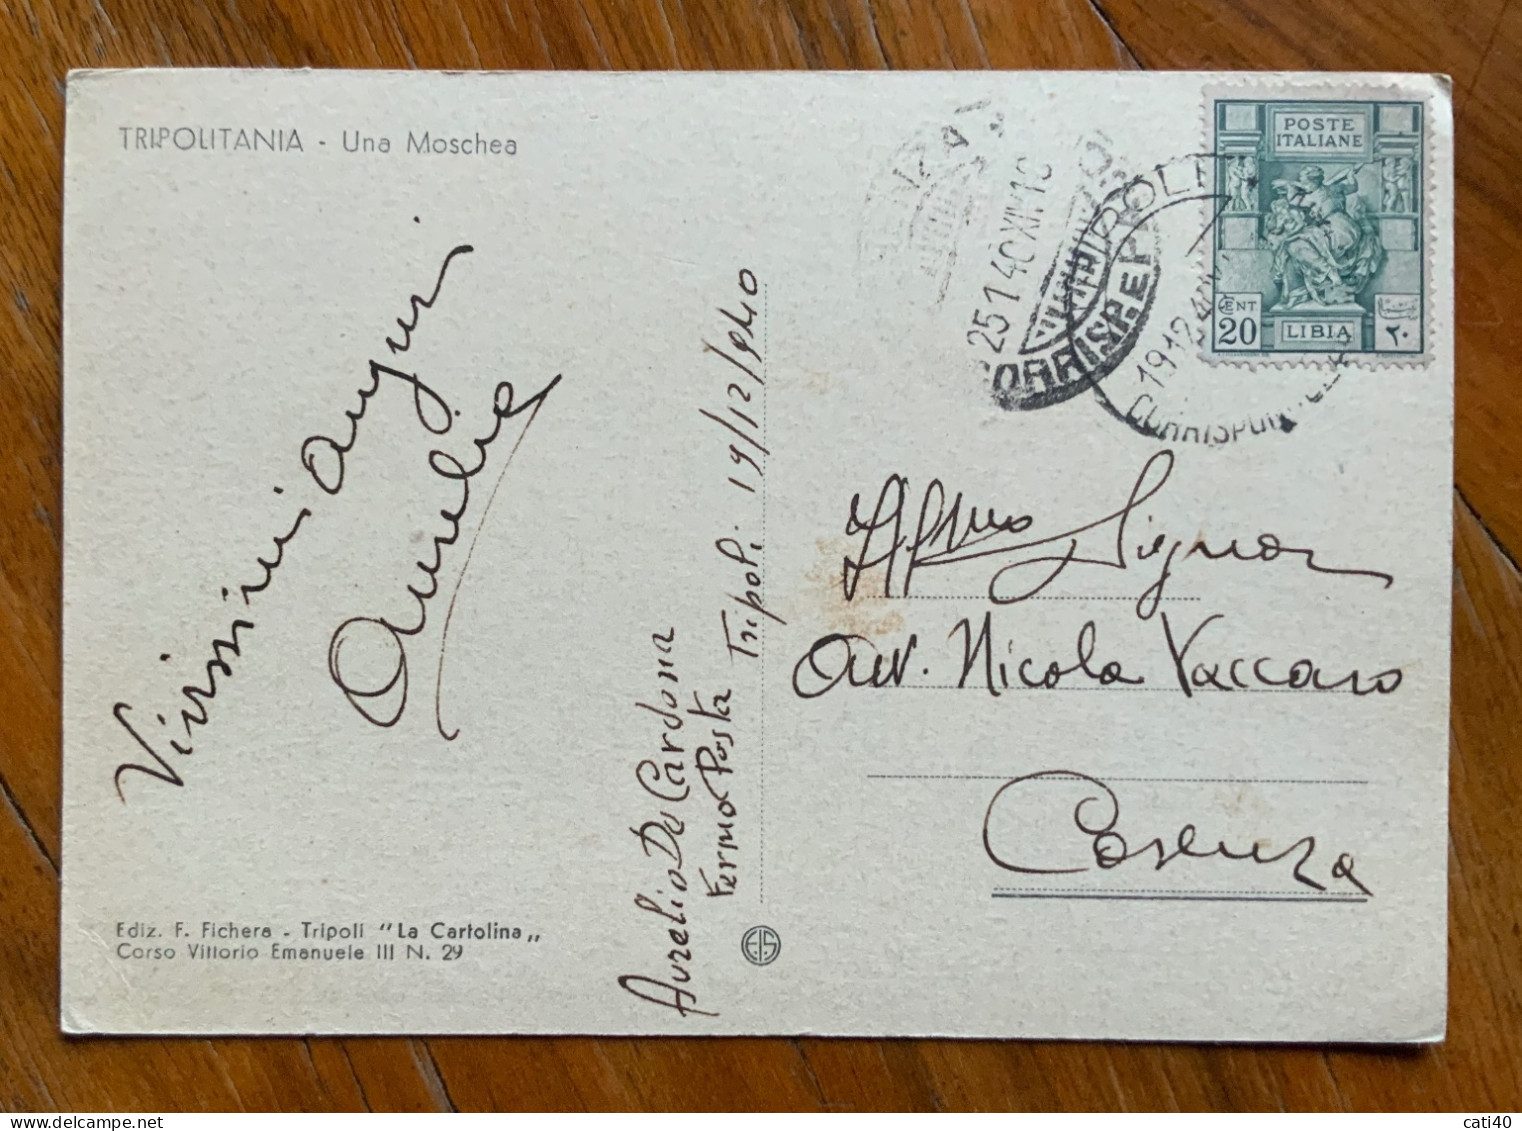 TRIPOLITANIA - Una Moschea
Vivissimi auguri
Aurelio
Ediz. F. Fichera - Tripoli "La Cartolina"
Corso Vittorio Emanuele III N. 29
Aurelio De Cardona
Fermo Posta
Tripoli 19/12/940
EIS
25 1 40 XIV 18
CORRISP. E P
TRIPOLI
19 12 4
CORRISPON
POSTE
ITALIANE
CENT
20
LIBIA
٢٠
Ill/mo Signor
Avv. Nicola Vaccaro
Cosenza
cati40